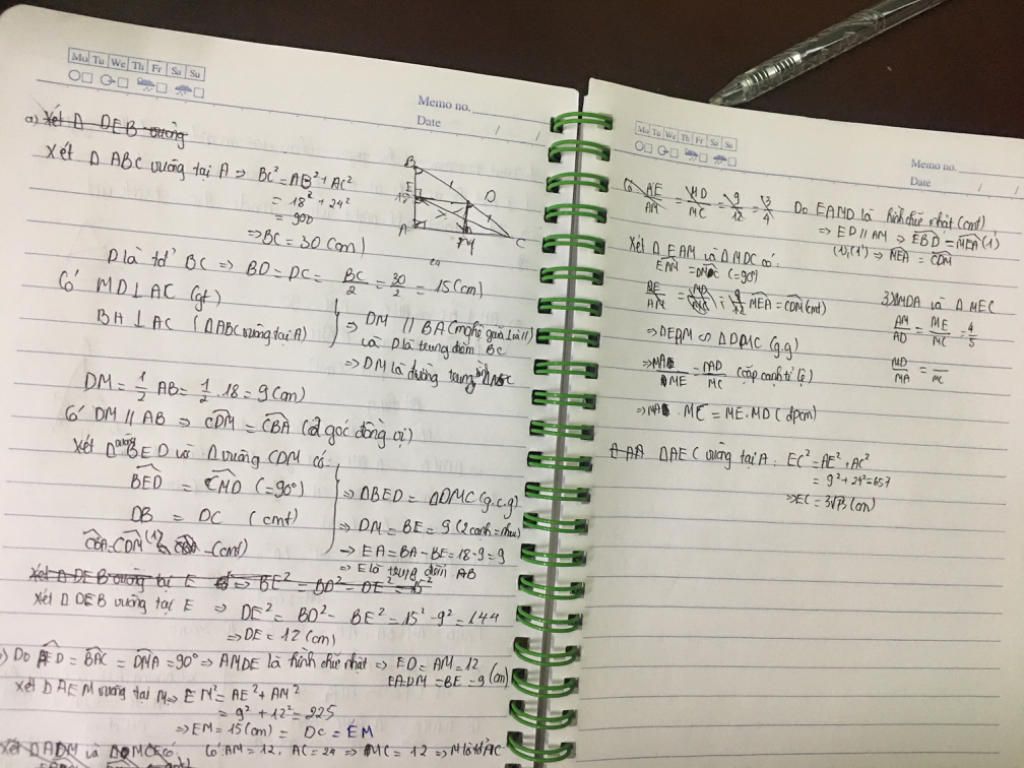 Mo Tu We Th Fr Sa Su
Memo no.
Date / /
a) Xét Δ DEB vuông
Xét Δ ABC vuông tại A ⇒ BC² = AB² + AC²
= 18² + 24²
= 900
⇒ BC = 30 (cm)
B
E
D
A
M
C
D là tđ BC ⇒ BD = DC = BC/2 = 30/2 = 15 (cm)
Có MD ⊥ AC (gt)
BA ⊥ AC (ΔABC vuông tại A)
⇒ DM // BA
và D là trung điểm BC
⇒ DM là đường trung
DM = 1/2 AB = 1/2 . 18 = 9 (cm)
Có DM // AB ⇒ CDM = CBA (2 góc đồng vị)
Xét Δ vuông BED và Δ vuông CDM có
BED = CMD (=90°)
DB = DC (cmt)
CBA = CDM (cmt)
⇒ ΔBED = ΔDMC (g.c.g)
⇒ DM = BE = 9
⇒ EA = BA - BE = 18 - 9 = 9
⇒ E là trung điểm AB
Xét Δ DEB vuông tại E ⇒ BE² = BD² - DE² = 15²
Xét Δ DEB vuông tại E ⇒ DE² = BD² - BE² = 15² - 9² = 144
⇒ DE = 12 (cm)
) Do AED = BAC = DMA = 90° ⇒ AMDE là hình chữ nhật ⇒ ED = AM = 12
EA = DM = BE = 9 (cm)
Xét Δ AEM vuông tại M ⇒ EM² = AE² + AM²
= 9² + 12² = 225
⇒ EM = 15 (cm) = DC = EM
Xét ΔADM và ΔDMCE có
Có AM = 12, AC = 24 ⇒ MC = 12 ⇒ M là tđ AC
Mo Tu We Th Fr Sa Su
Memo no.
Date / /
Có AE/AM = MD/MC = 9/12 = 3/4
Do EAMD là hình chữ nhật (cmt)
⇒ ED // AM ⇒ EBD = MEA (1')
(1), (1') ⇒ MEA = CDM
Xét Δ EAM và ΔMDC có:
EAM = DMC (=90°)
MEA = CDM (cmt)
⇒ ΔEAM ∽ ΔDMC (g.g)
= MD/MC (cặp cạnh tỉ lệ)
. MC = ME . MD (đpcm)
MDA và Δ MEC
AM/AD = ME/MC = 4/5
MD/MA =
ΔAEC vuông tại A: EC² = AE² + AC²
= 9² + 24² = 657
⇒ EC = 3√73 (cm)